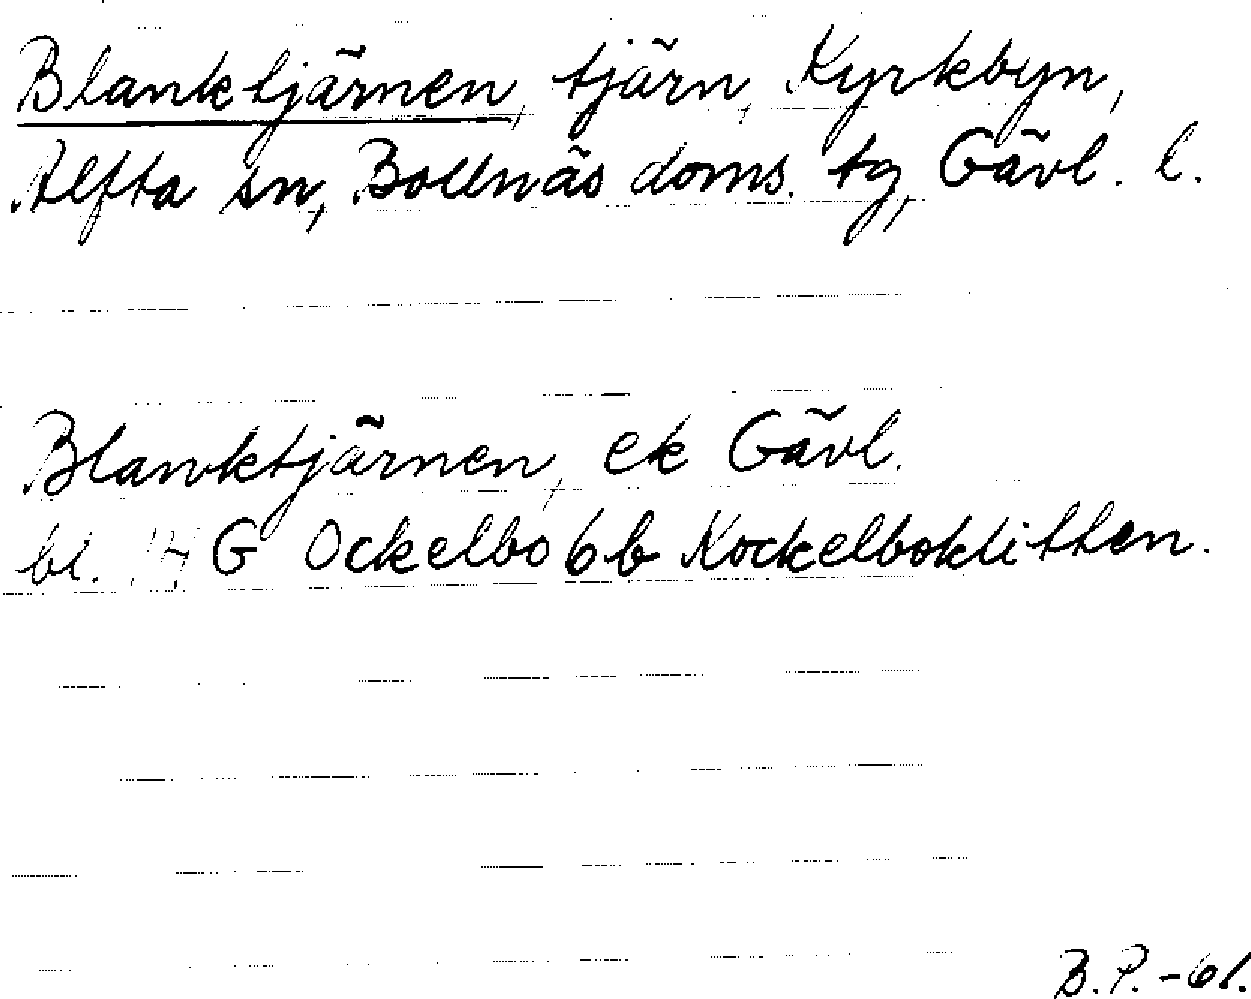 Blanktjärnen, tjärn, Kyrkbyn,
Alfta sn, Bollnäs doms. tg, Gävl. l.
Blanktjärnen, ek Gävl.
bl. 14 G Ockelbo 6 b Kockelboklitten.
B.P. -61.